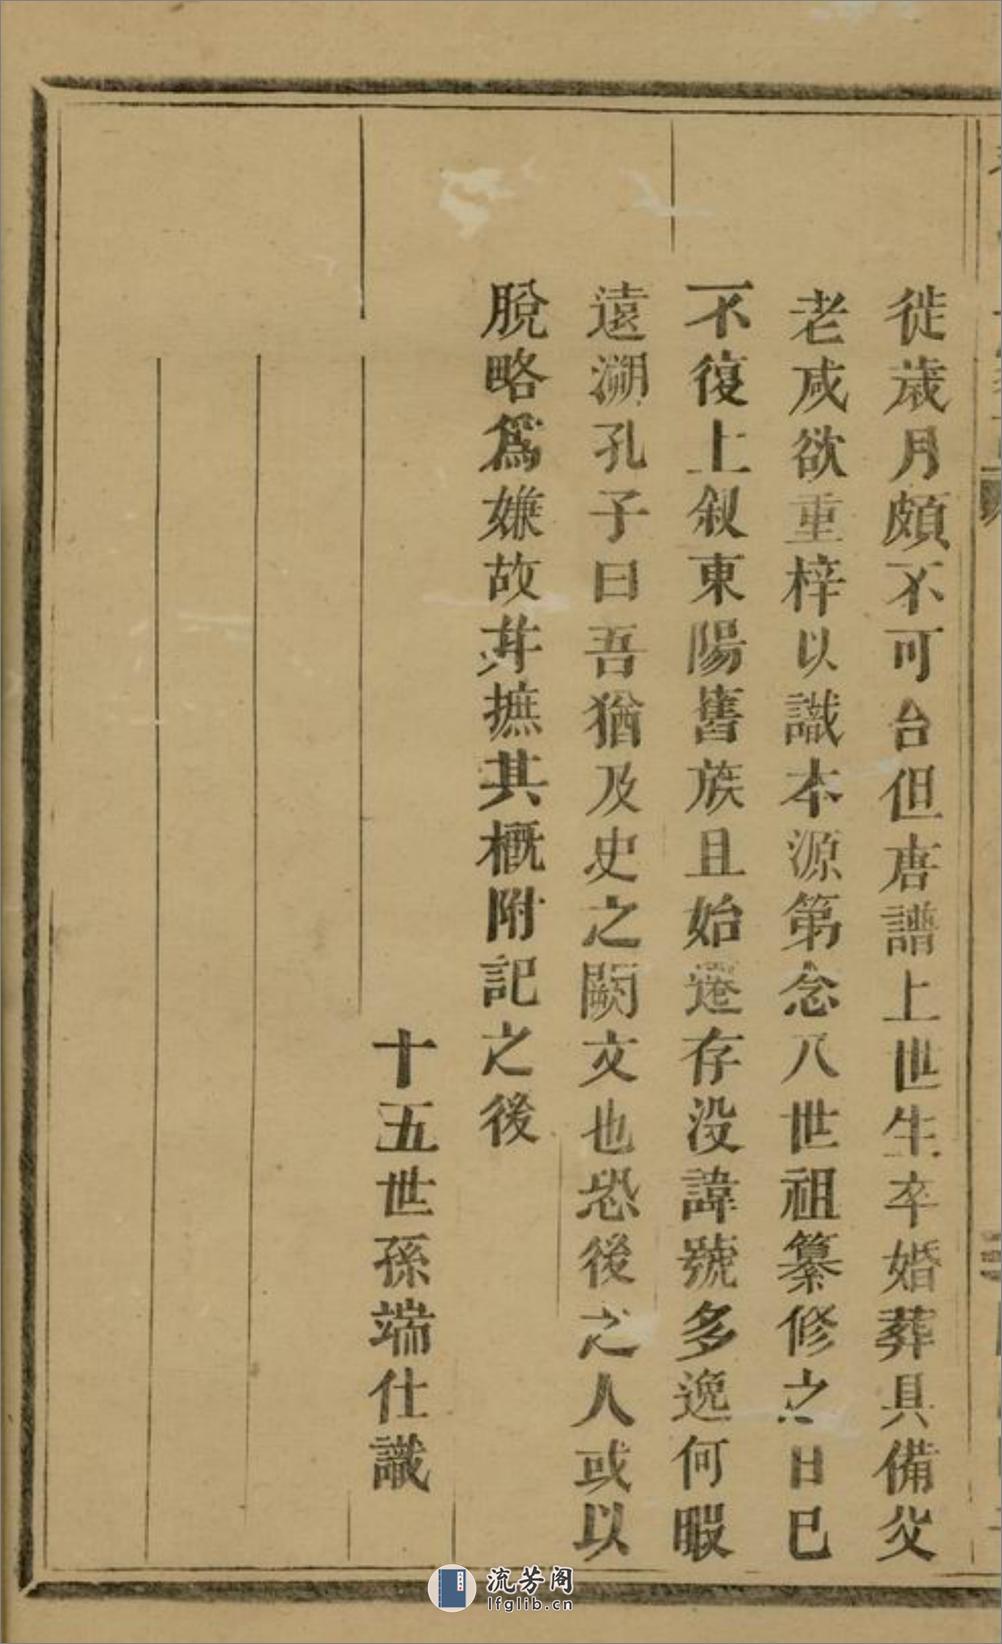 徙歲月頗不可台但唐譜上世生卒婚葬具備父
老咸欲重梓以識本源第念八世祖纂修之日已
不復上叙東陽舊族且始遷存没諱號多逸何暇
遠溯孔子曰吾猶及史之闕文也恐後之人或以
脫略爲嫌故并摭其概附記之後
十五世孫端仕識
流芳阁
lfglib.cn